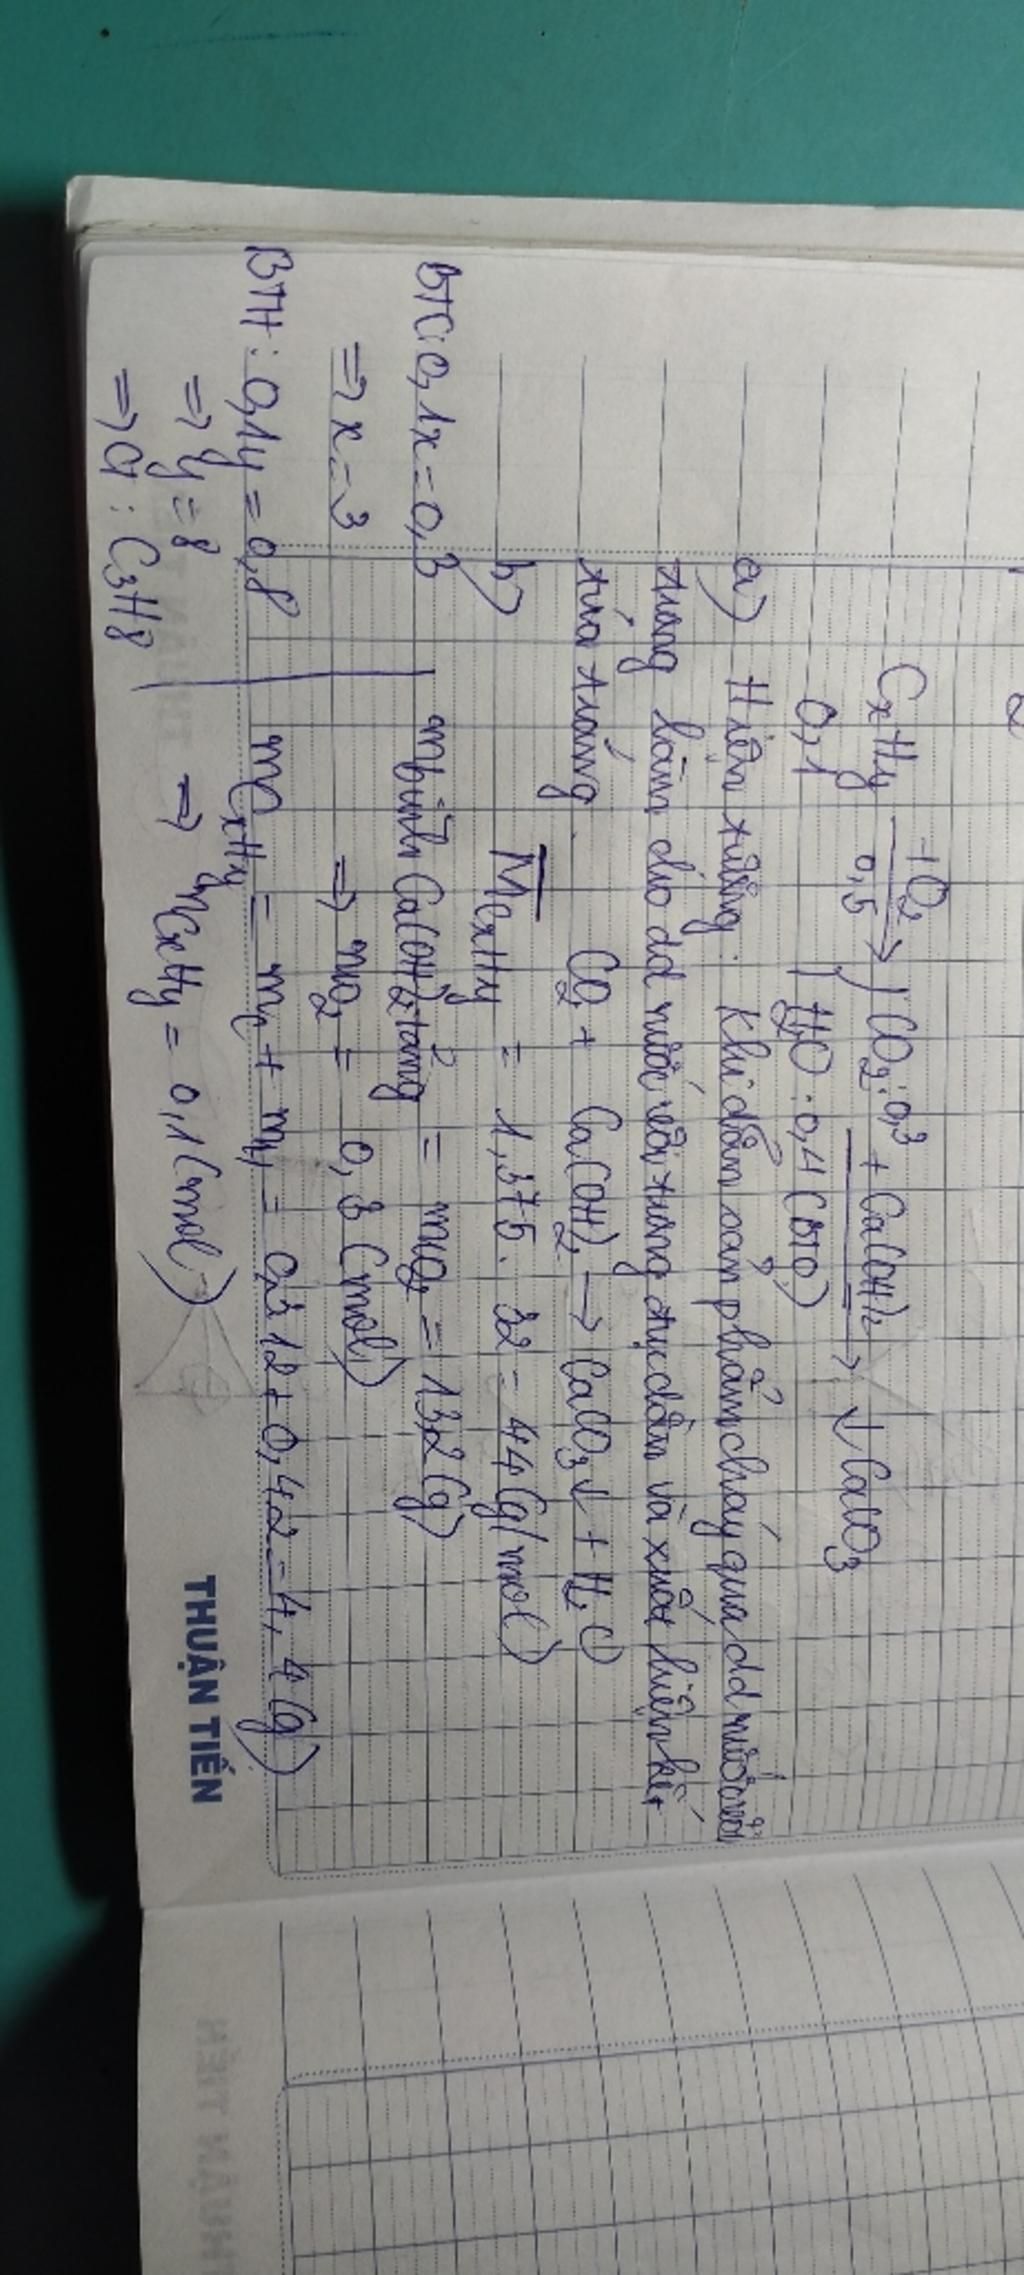 CxHy +O2 0,5 → CO2: 0,3 + Ca(OH)2 → ↓ CaCO3
0,1 H2O: 0,4 (BTO)
a) Hiện tượng: Khi dẫn sản phẩm cháy qua dd nước vôi
trong làm cho dd nước vôi trong đục dần và xuất hiện kết
tủa trắng.
CO2 + Ca(OH)2 → CaCO3↓ + H2O
b) MCxHy = 1,375. 32 = 44 (g/mol)
mbình Ca(OH)2 tăng = mCO2 = 13,2 (g)
⇒ nCO2 = 0,3 (mol)
mCxHy = mC + mH = 0,3.12 + 0,4.2 = 4,4 (g)
⇒ nCxHy = 0,1 (mol)
BTC: 0,1x = 0,3
⇒ x = 3
BTH: 0,1y = 0,8
⇒ y = 8
⇒ : C3H8
THUẬN TIẾN